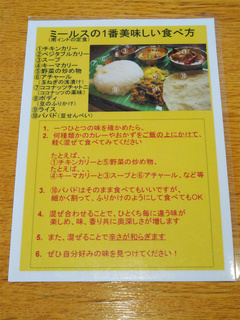 ミールスの1番美味しい食べ方
(南インドの定食)
①チキンカリー
②ベジタブルカリー
③スープ
④キーマカリー
⑤野菜の炒め物
⑥アチャール
(玉ねぎの浅漬け)
⑦ココナッツチャトニ
(ココナッツの薬味)
⑧ポディ
(豆のふりかけ)
⑨ライス
⑩パパド(豆せんべい)
1. 一つひとつの味を確かめたら、
2. 何種類かのカレーやおかずをご飯の上にかけて、
軽く混ぜて食べてみてください
たとえば、、、
①チキンカリーと⑤野菜の炒め物、
たとえば、、、
④キーマカリーと③スープと⑥アチャール、など等
3. ⑩パパドはそのまま食べてもいいですが、
細かく割って、ふりかけのようにして食べてもOK
4. 混ぜ合わせることで、ひとくち毎に違う味が
楽しめ、味、香り共に奥深しさが増します
5. また、混ぜることで辛さが和らぎます
6. ぜひ自分好みの味を見つけてください!